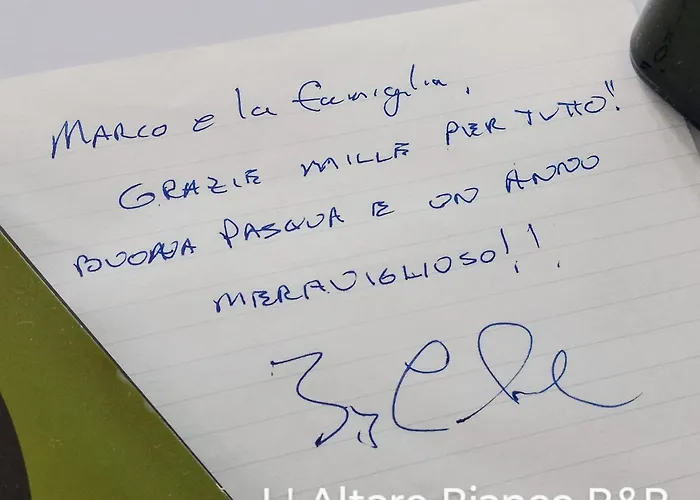 MARCO e la famiglia,
GRAZIE MILLE PER TUTTO!!
BUONA PASQUA E UN ANNO
MERAVIGLIOSO!!
Altare Bianco B&B